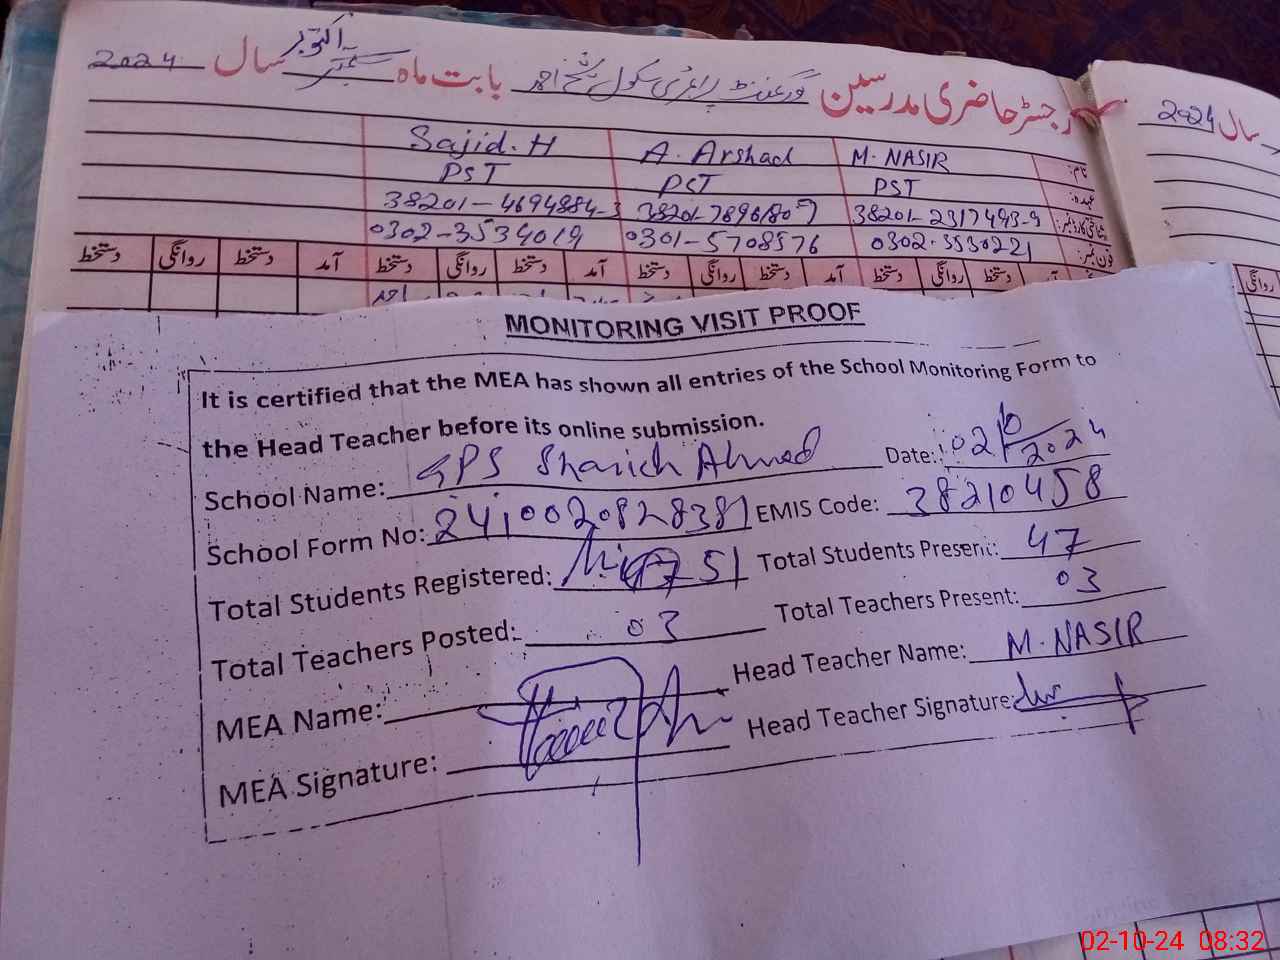 رجسٹر حاضری مدرسین گورنمنٹ پرائمری سکول شیخ احمد بابت ماہ اکتوبر سال 2024
سال 2024
نام: M. NASIR A. Arshad Sajid. H
عہدہ: PST PST PST
شناختی کارڈ نمبر: 38201-2317493-9 38201-7896180-7 38201-4694884-3
فون نمبر: 0302-5530221 0301-5708576 0302-3534019
آمد دستخط روانگی دستخط آمد دستخط روانگی دستخط آمد دستخط روانگی دستخط
روانگی
MONITORING VISIT PROOF
It is certified that the MEA has shown all entries of the School Monitoring Form to
the Head Teacher before its online submission.
School Name: GPS Shaikh Ahmed Date: 02/10/2024
School Form No: 241002082838 EMIS Code: 38210458
Total Students Registered: 51 Total Students Present: 47
Total Teachers Posted: 03 Total Teachers Present: 03
MEA Name: Head Teacher Name: M. NASIR
MEA Signature: Head Teacher Signature:
02-10-24 08:32